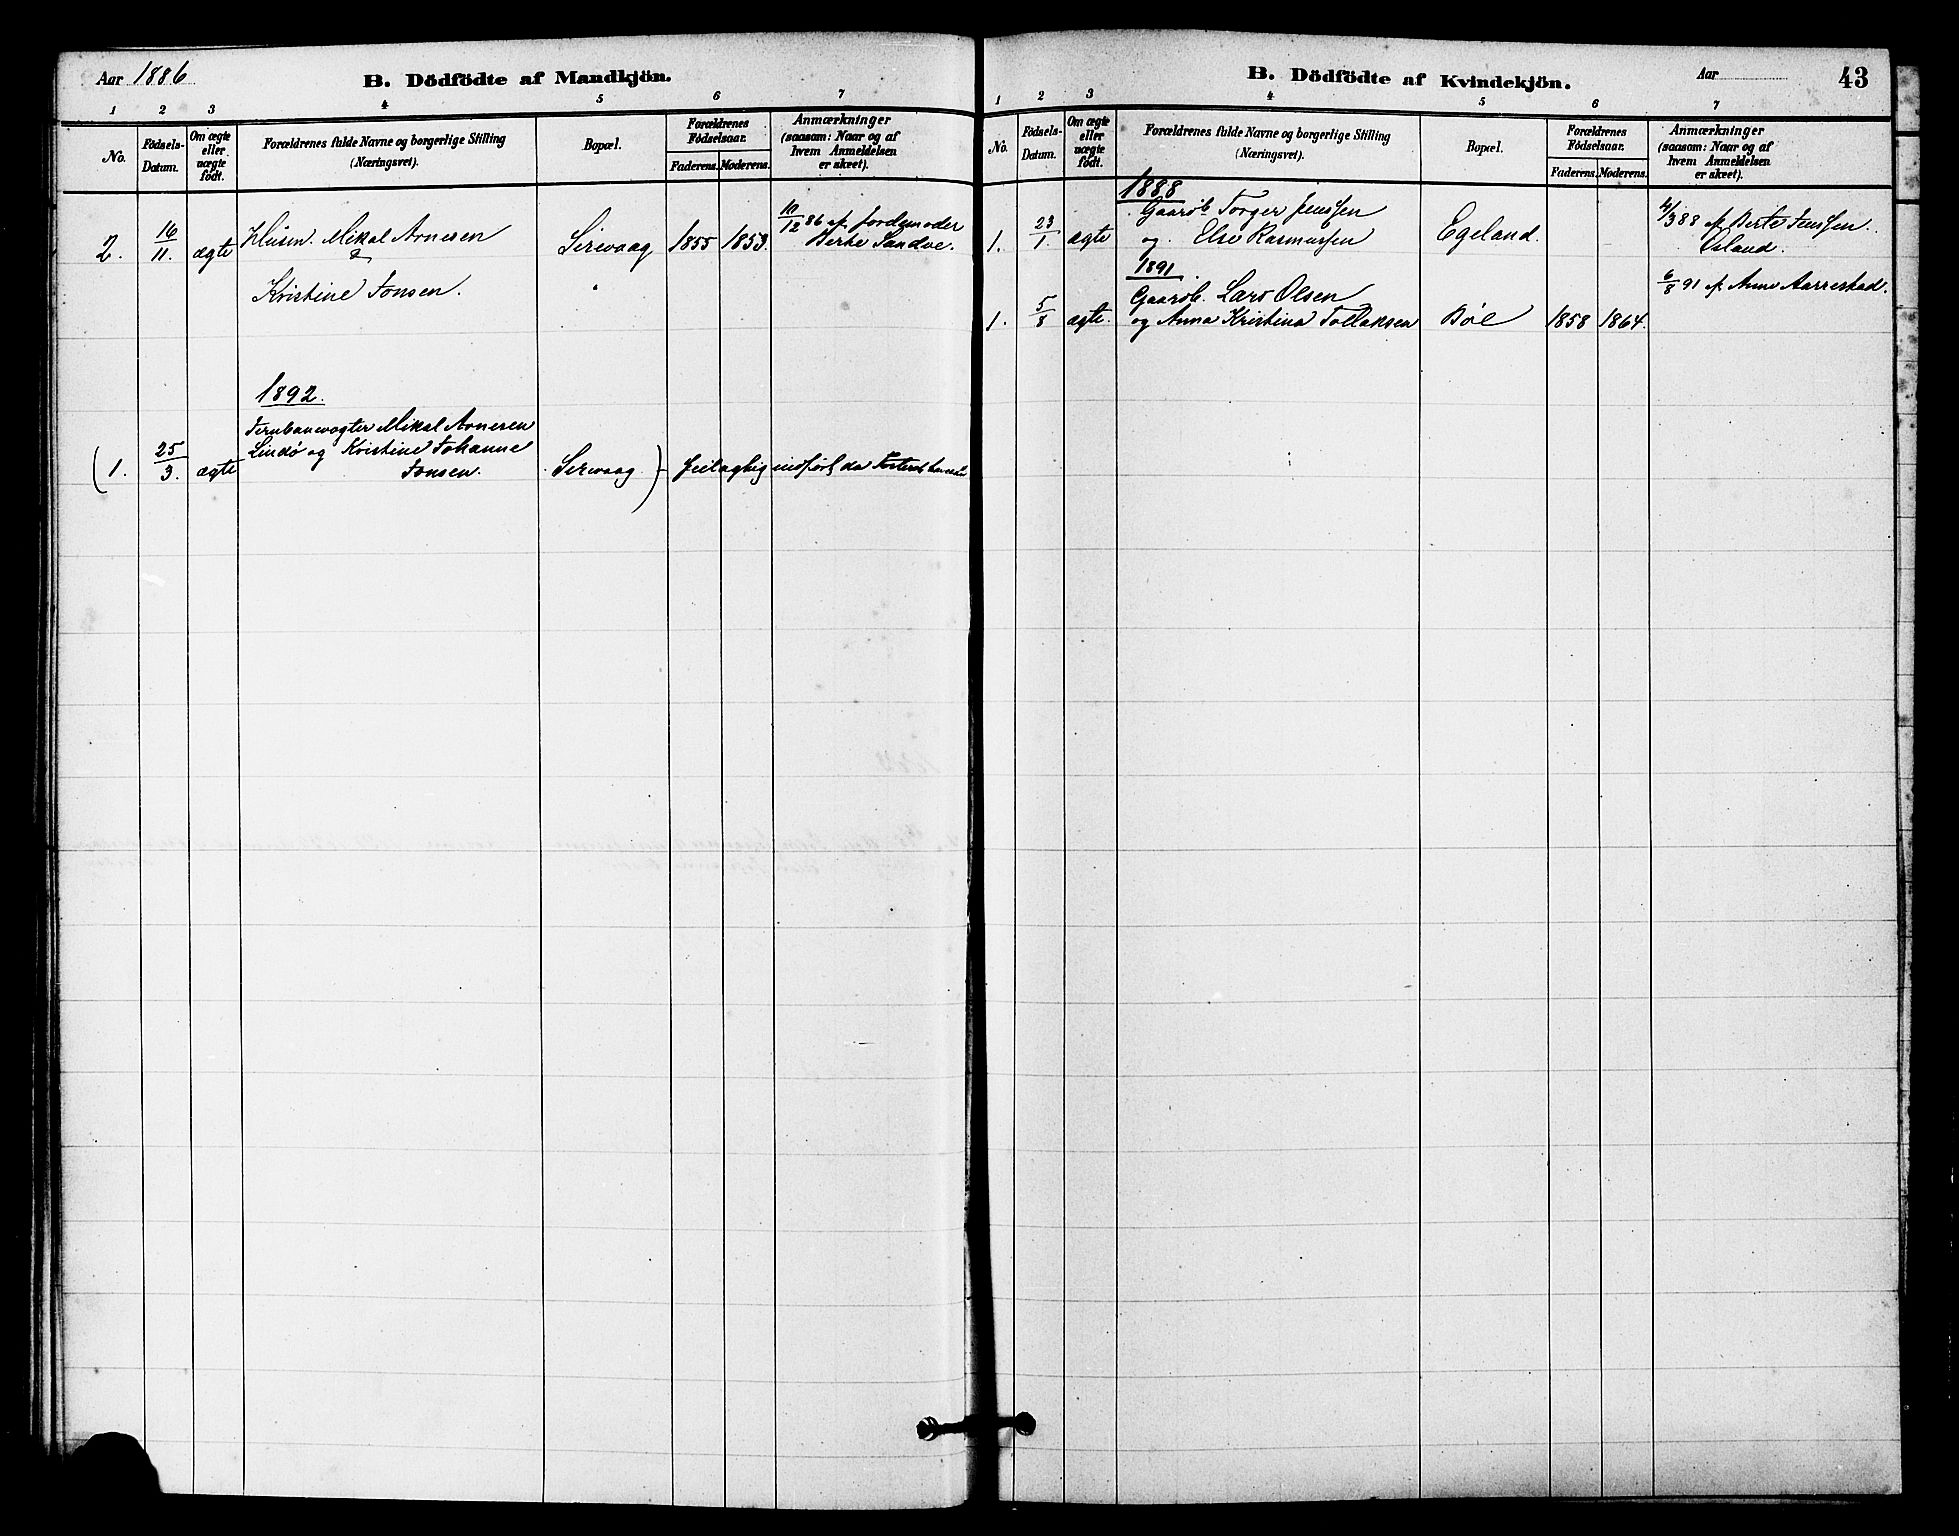 Aar 1886
B. Dödfödte af Mandkjön.
1 2 3 4 5 6 7
No.
Födsels-
Datum.
Om ægte
eller
uægte
födt.
Forældrenes fulde Navne og borgerlige Stilling
(Næringsvei).
Bopæl.
Forældrenes
Födselsaar.
Faderens. Moderens.
Anmærkninger
(saasom: Naar og af
hvem Anmeldelsen
er skeet).
2. 16/11. ægte Husm. Mikal Arnesen
&
Kristine Jonsen.
Sirevaag 1855 1853.
10/12 86 af Jordemoder
Berte Sandve.
1892.
(1. 25/3. ægte
Jernbanevogter Mikal Arnesen
Lindø og Kristine Johanne
Jonsen.
Sirevaag) - feilagtig indført da Fosteret
B. Dödfödte af Kvindekjön.
Aar
43
1 2 3 4 5 6 7
No.
Födsels-
Datum.
Om ægte
eller
uægte
födt.
Forældrenes fulde Navne og borgerlige Stilling
(Næringsvei).
Bopæl.
Forældrenes
Födselsaar.
Faderens. Moderens.
Anmærkninger
(saasom: Naar og af
hvem Anmeldelsen
er skeet).
1888
1. 23/1 ægte
Gaarbr. Torger Jenssen
og Else Rasmussen
Egeland.
4/3 88 af Berte Jenssen
1891.
1. 5/8 ægte.
Gaarbr. Lars Olsen
og Anna Kristina Tollaksen
Bøe 1858 1864.
6/8 91 af Anne Aarrestad.